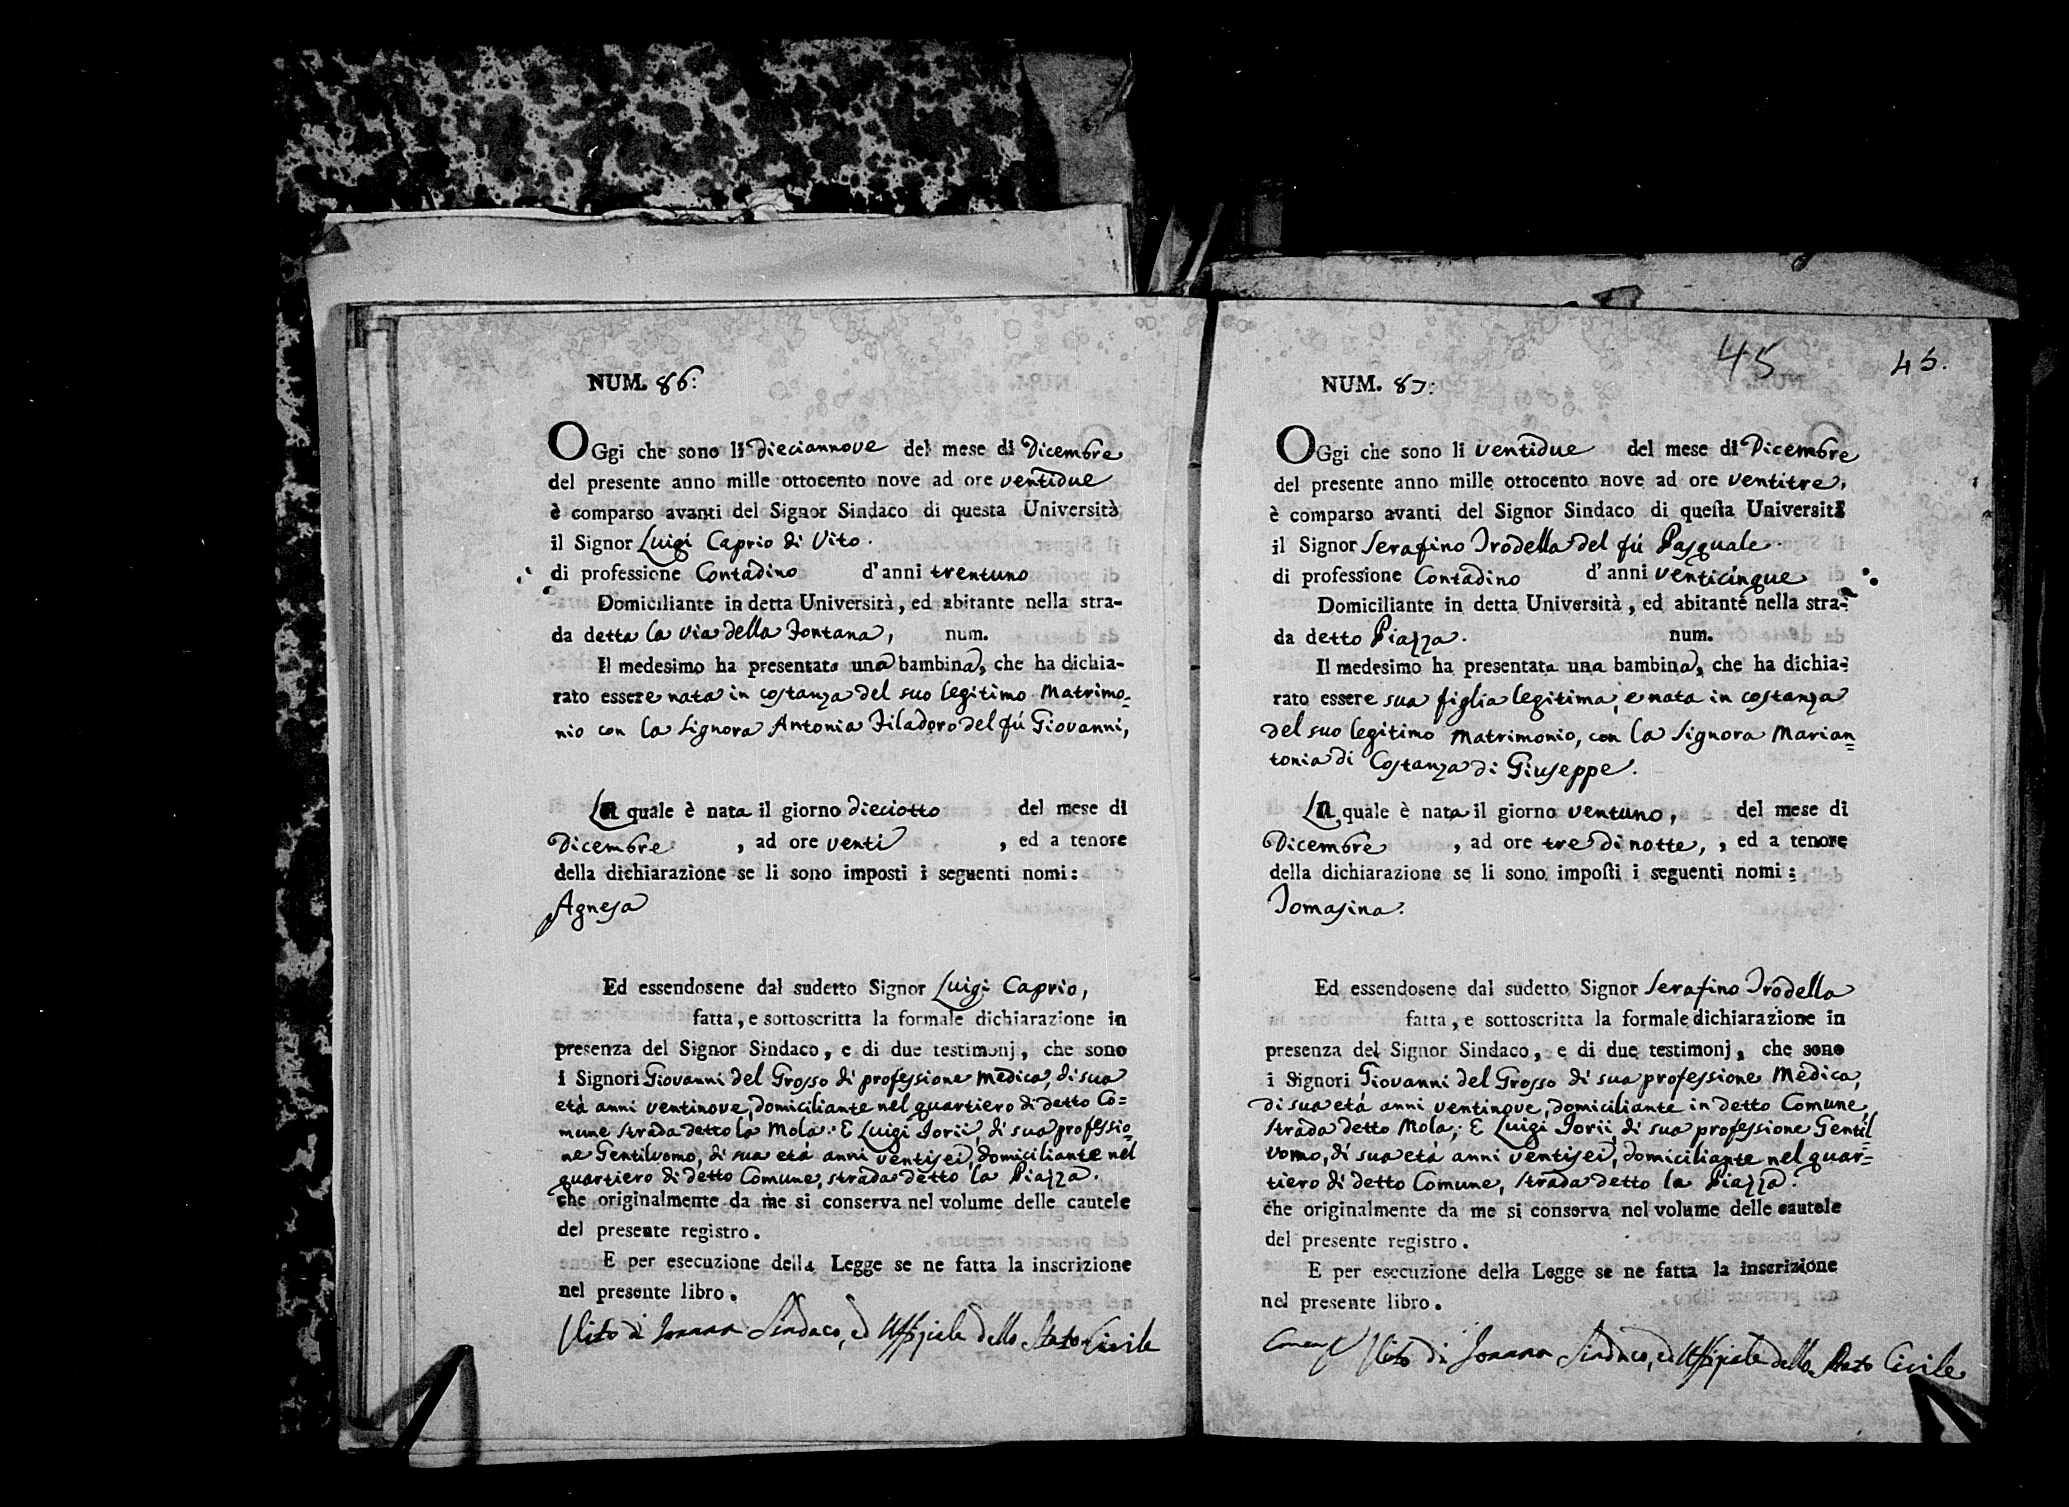 NUM. 86:
OGgi che sono li dieciannove del mese di Dicembre
del presente anno mille ottocento nove ad ore ventidue
è comparso avanti del Signor Sindaco di questa Università
il Signor Luigi Caprio di Vito.
di professione Contadino d'anni trentuno
Domiciliante in detta Università, ed abitante nella stra-
da detta la via della Fontana, num.
Il medesimo ha presentata una bambina, che ha dichia-
rato essere nata in costanza del suo legitimo Matrimo=
nio con la Signora Antonia Filadoro del fú Giovanni,
La quale è nata il giorno dieciotto del mese di
Dicembre, ad ore venti, ed a tenore
della dichiarazione se li sono imposti i seguenti nomi:
Agnesa
Ed essendosene dal sudetto Signor Luigi Caprio,
fatta, e sottoscritta la formale dichiarazione in
presenza del Signor Sindaco, e di due testimonj, che sono
i Signori Giovanni del Grosso di professione Medica, di sua
età anni ventinove, domiciliante nel quartiero di detto Co=
mune strada detto la Mola: E Luigi Iorii, di sua professio=
ne Gentiluomo, di sua età anni ventisei, domiciliante nel
quartiero di detto Comune, strada detto la Piazza.
che originalmente da me si conserva nel volume delle cautele
del presente registro.
E per esecuzione della Legge se ne fatta la inscrizione
nel presente libro.
Vito di Sindaco, ed Uffiziale dello Stato Civile
45 45.
NUM. 87:
OGgi che sono li ventidue del mese di Dicembre
del presente anno mille ottocento nove ad ore ventitre,
è comparso avanti del Signor Sindaco di questa Università
il Signor Serafino Irodella del fú Pasquale.
di professione Contadino d'anni venticinque
Domiciliante in detta Università, ed abitante nella stra-
da detto Piazza. num.
Il medesimo ha presentata una bambina, che ha dichia-
rato essere sua figlia legitima, e nata in costanza
del suo legitimo Matrimonio, con la Signora Marian=
tonia di Costanza di Giuseppe.
La quale è nata il giorno ventuno, del mese di
Dicembre, ad ore tre di notte, , ed a tenore
della dichiarazione se li sono imposti i seguenti nomi:
Tomasina.
Ed essendosene dal sudetto Signor Serafino Irodella
fatta, e sottoscritta la formale dichiarazione in
presenza del Signor Sindaco, e di due testimonj, che sono
i Signori Giovanni del Grosso di sua professione Medica,
di sua età anni ventinove, domiciliante in detto Comune,
strada detto Mola; E Luigi Iorii, di sua professione Gentil=
uomo, di sua età anni ventisei, domiciliante nel quar=
tiero di detto Comune, strada detto la Piazza.
che originalmente da me si conserva nel volume delle cautele
del presente registro.
E per esecuzione della Legge se ne fatta la inscrizione
nel presente libro.
Vito di Sindaco, ed Uffiziale dello Stato Civile